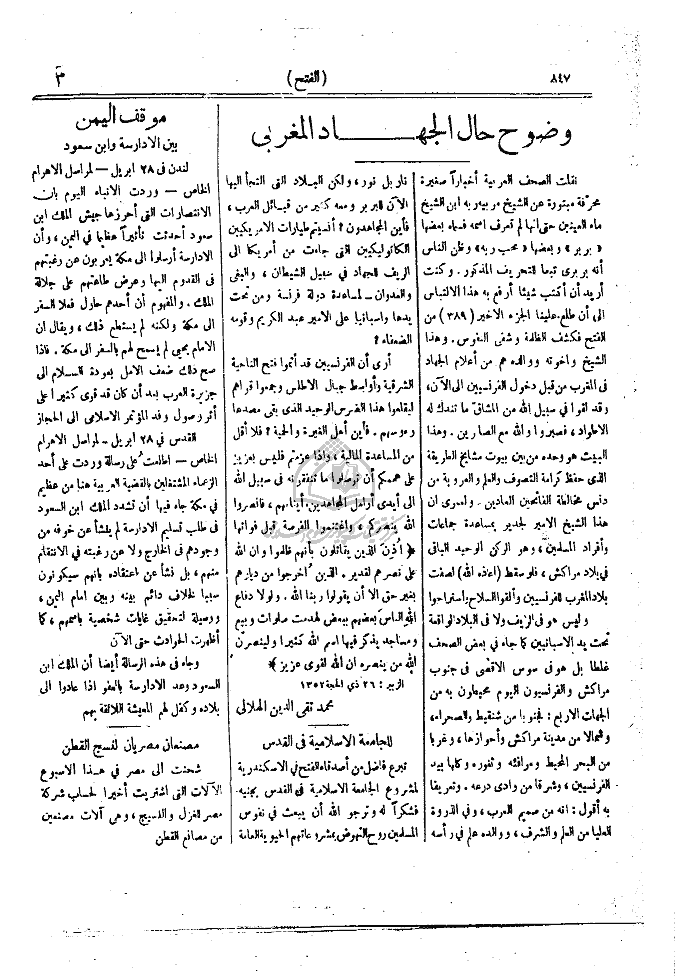 ٨٤٧
(الفتح)
٣
وضوح حال الجهاد المغربى
نقلت الصحف العربية أخباراً صغيرة
محرّفة مبتورة عن الشيخ مربيه ربه ابن الشيخ
ماء العينين حتى انها لم تعرف اسمه فسماه بعضها
« بربر » وبعضها « محب ربه » وظن الناس
أنه بربرى تبعا للتحريف المذكور. وكنت
أريد أن أكتب شيئا أرفع به هذا الالتباس
الى أن طلع علينا الجزء الاخير (٣٨٩) من
الفتح فكشف الظلمة وشفى النفوس. وهذا
الشيخ واخوته ووالده هم من أعلام الجهاد
فى المغرب من قبل دخول الفرنسيين الى الآن،
وقد لقوا فى سبيل الله من المشاق ما تندك له
الاطواد، فصبروا والله مع الصابرين. وهذا
البيت هو وحده من بين بيوت مشايخ الطريقة
الذى حفظ كرامة التصوف والعلم والعروبة من
دنس مخالطة الفاتحين العادين. ولعمرى ان
هذا الشيخ الامير لجدير بمساعدة جماعات
وأفراد المسلمين، وهو الركن الوحيد الباقى
فى بلاد مراكش، فلو سقط (أعاذه الله) لصفت
بلاد المغرب للفرنسيين وألقوا السلاح واستراحوا
وليس هو فى الريف ولا فى البلاد الواقعة
تحت يد الاسبانيين كما جاء فى بعض الصحف
غلطا بل هو فى سوس الاقصى فى جنوب
مراكش والفرنسيون اليوم محيطون به من
الجهات الاربع: فجنوبا من شنقيط والصحراء،
وشمالا من مدينة مراكش وأحوازها، وغربا
من البحر المحيط ومرافئه وثغوره وكلها بيد
الفرنسيين، وشرقا من وادى درعه. وتعريفا
به أقول: انه من صميم العرب، وفى الذروة
العليا من العلم والشرف، ووالده علم في رأسه
نار بل نور، ولكن البلاد التى التجأ اليها
الآن للبربر ومعه كثير من قبائل العرب،
فأين المجاهدون؟ أتنتدب طيارات الامريكيين
الكاثوليكيين التى جاءت من أمريكا الى
الريف للجهاد في سبيل الشيطان، والبغى
والعدوان ـ لمساعدة دولة فرنسة ومن تحت
يدها واسبانيا على الامير عبد الكريم وقومه
الضعفاء؟
أرى أن الفرنسيين قد أتموا فتح الناحية
الشرقية وأواسط جبال الاطلس وجمعوا قواهم
ليقلعوا هذا الضرس الوحيد الذى بقى مصدعا
رءوسهم. فأين أهل الغيرة والحمية؟ فلا أقل
من المساعدة المالية، واذا عزمتم فليس بعزيز
على هممكم أن توصلوا ما تنفقونه فى سبيل الله
الى أيدى أرامل المجاهدين وأيتامهم، فانصروا
الله ينصركم، واغتنموا الفرصة قبل فواتها
﴿ أُذن للذين يقاتلون بأنهم ظلموا وان الله
على نصرهم لقدير. الذين أخرجوا من ديارهم
بغير حق الا أن يقولوا ربنا الله. ولولا دفاع
الله الناس بعضهم ببعض لهدمت صلوات وبيع
ومساجد يذكر فيها اسم الله كثيرا ولينصرنّ
الله من ينصره ان الله لقوى عزيز ﴾
الزبير: ٢٦ ذي الحجة ١٣٥٢
محمد تقى الدين الهلالى
للجامعة الاسلامية فى القدس
تبرع فاضل من أصدقاء الفتح فى الاسكندرية
لمشروع الجامعة الاسلامية فى القدس بجنيه.
فشكراً له ونرجو الله أن يبعث فى نفوس
المسلمين روح النهوض بمشروعاتهم الحيوية العامة
موقف اليمن
بين الادارسة وابن سعود
لندن فى ٢٨ ابريل ـ لمراسل الاهرام
الخاص ـ وردت الانباء اليوم بأن
الانتصارات التى أحرزها جيش الملك ابن
سعود أحدثت تأثيراً عظيما في اليمن، وأن
الادارسة أرسلوا الى مكة يعربون عن رغبتهم
فى القدوم اليها وعرض طاعتهم على جلالة
الملك. والمفهوم أن أحدهم حاول فعلا السفر
الى مكة ولكنه لم يستطع ذلك، ويقال ان
الامام يحيى لم يسمح لهم بالسفر الى مكة. فاذا
صح ذلك ضعف الامل بعودة السلام الى
جزيرة العرب بعد أن كان قد قوى كثيرا على
أثر وصول وفد المؤتمر الاسلامى الى الحجاز
القدس فى ٢٨ ابريل ـ لمراسل الاهرام
الخاص ـ اطلعت على رسالة وردت على أحد
الزعماء المشتغلين بالقضية العربية هنا من عظيم
فى مكة جاء فيها أن تشدد الملك ابن السعود
فى طلب تسليم الادارسة لم ينشأ عن خوفه من
وجودهم فى الخارج ولا عن رغبته فى الانتقام
منهم، بل نشأ عن اعتقاده بانهم سيكونون
سببا لخلاف دائم بينه وبين امام اليمن،
ووسيلة لتحقيق غايات شخصية باسمهم، كما
أظهرت الحوادث حتى الآن
وجاء فى هذه الرسالة أيضا أن الملك ابن
السعود وعد الادارسة بالعفو اذا عادوا الى
بلاده وكفل لهم المعيشة اللائقة بهم
مصنعان مصريان لنسج القطن
شحنت الى مصر في هذا الاسبوع
الآلات التى اشتريت أخيرا لحساب شركة
مصر للغزل والنسيج، وهى آلات مصنعين
من مصانع القطن